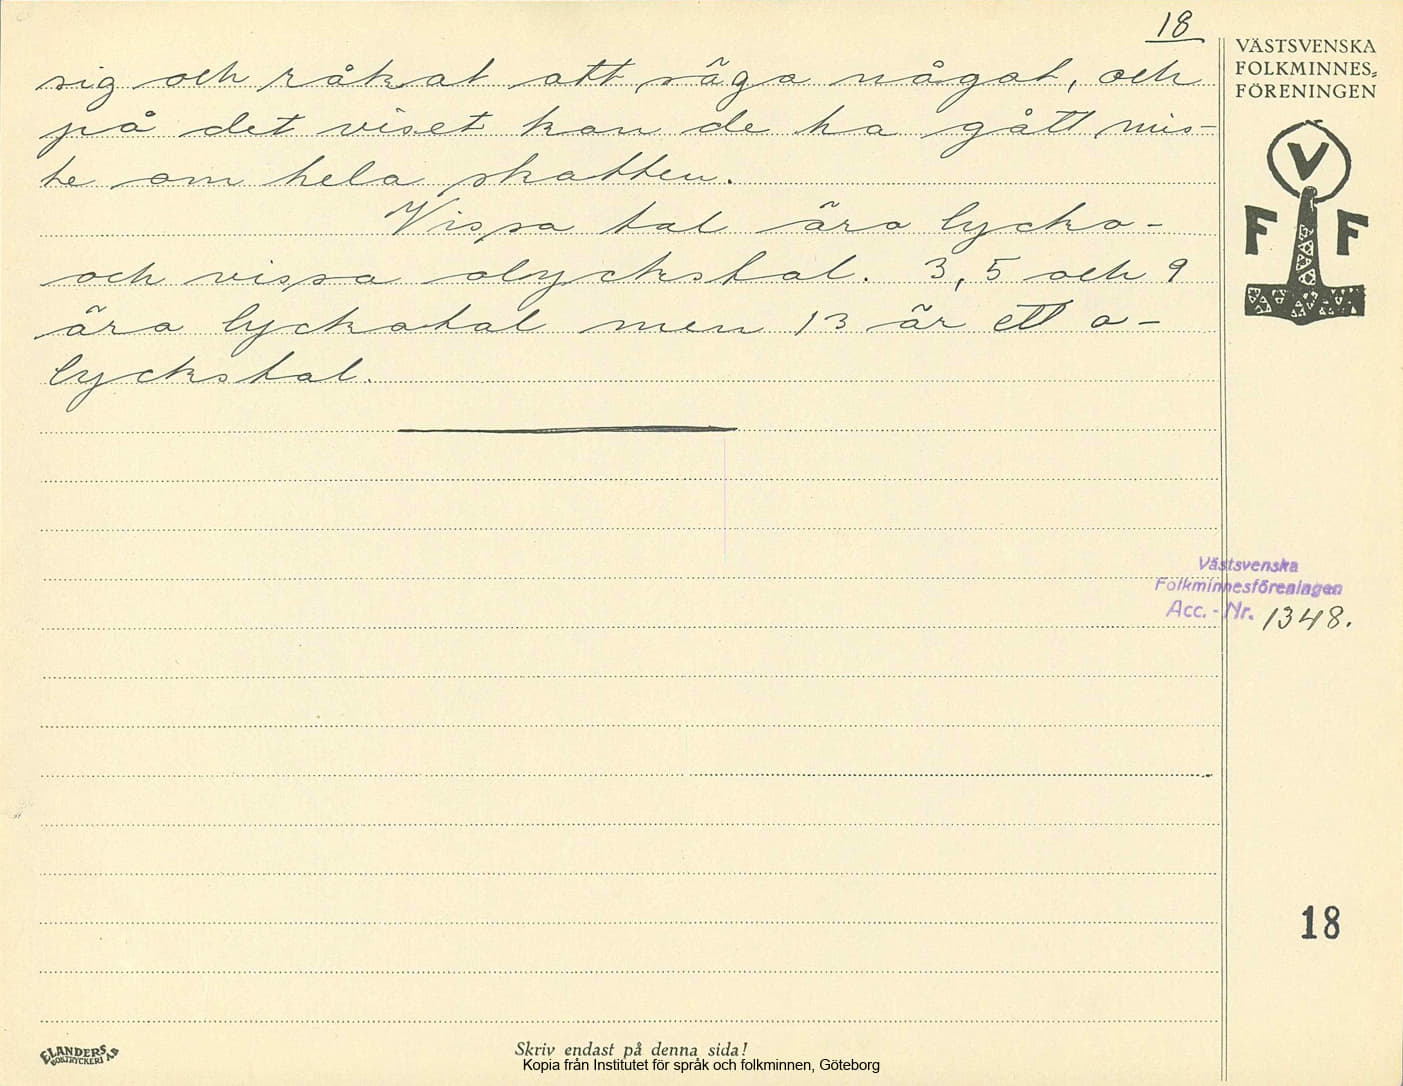 18
sig och råkat att säga något, och
på det viset kan de ha gått mis-
te om hela skatten.
Vissa tal ära lycko-
och vissa olyckstal. 3, 5 och 9
ära lyckotal men 13 är ett o-
lyckstal.
VÄSTSVENSKA
FOLKMINNES-
FÖRENINGEN
V
F F
Västsvenska
Folkminnesföreningen
Acc.-Nr. 1348.
18
ELANDERS
BOKTRYCKERI AB
Skriv endast på denna sida!
Kopia från Institutet för språk och folkminnen, Göteborg